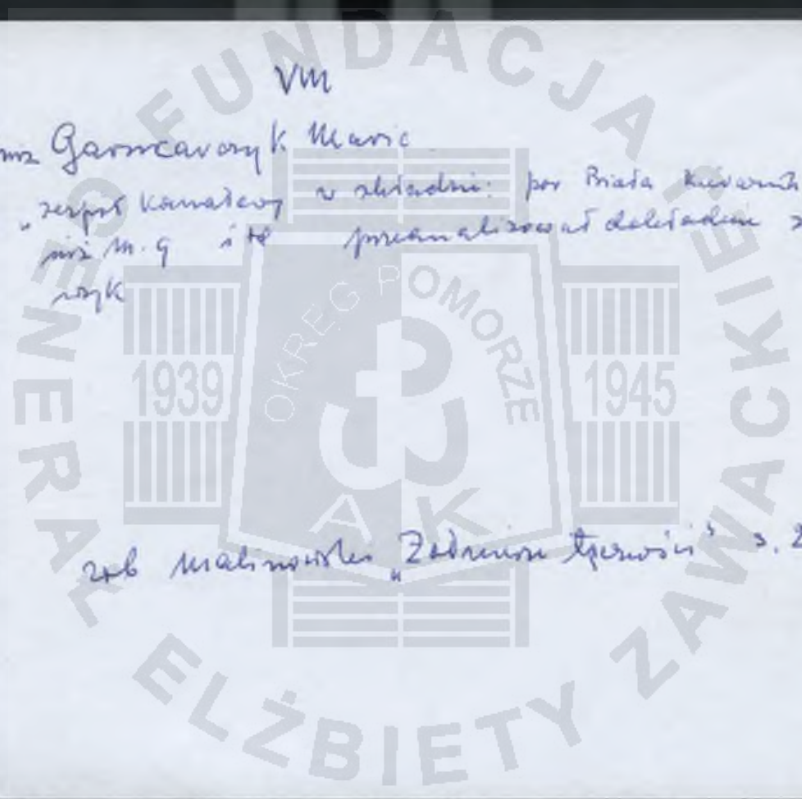 VIII
inż Garncarczyk Maria
"zespół kanałowy w składzie: por Biała kierownik
inż M. G i td przeanalizował dokładnie
czyk
zob Malinowski "Żołnierze łączności" s. 2
FUNDACJA
GENERAŁ ELŻBIETY ZAWACKIEJ
OKRĘG POMORZE
1939
1945
AK